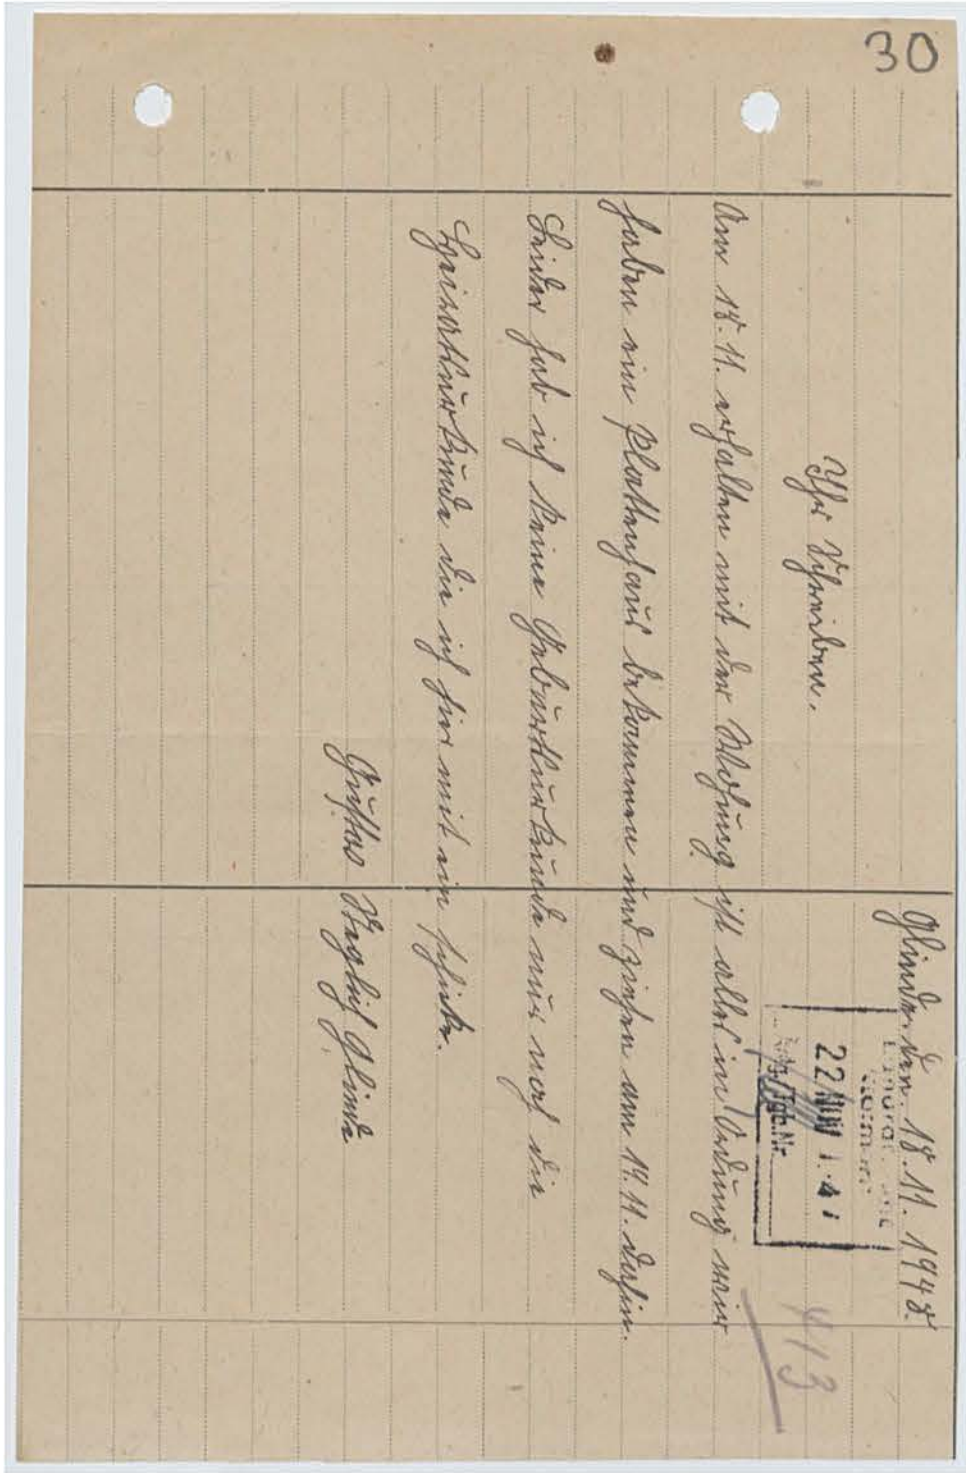 30
Glinde den. 18.11.1948.
22 NOV
Tgb.Nr.
413
Ihr Schreiben.
Am 18.11. erhalten mit der Wohung ist alles in Ordung wir
haben ein Plattenhaus bekommen und ziehen am 19.11. dahin.
Leider hab ich keine Geburtsurkunde nur noch die
Heiratsurkunde die ich hier mit ein schicke.
Gustav Glinde